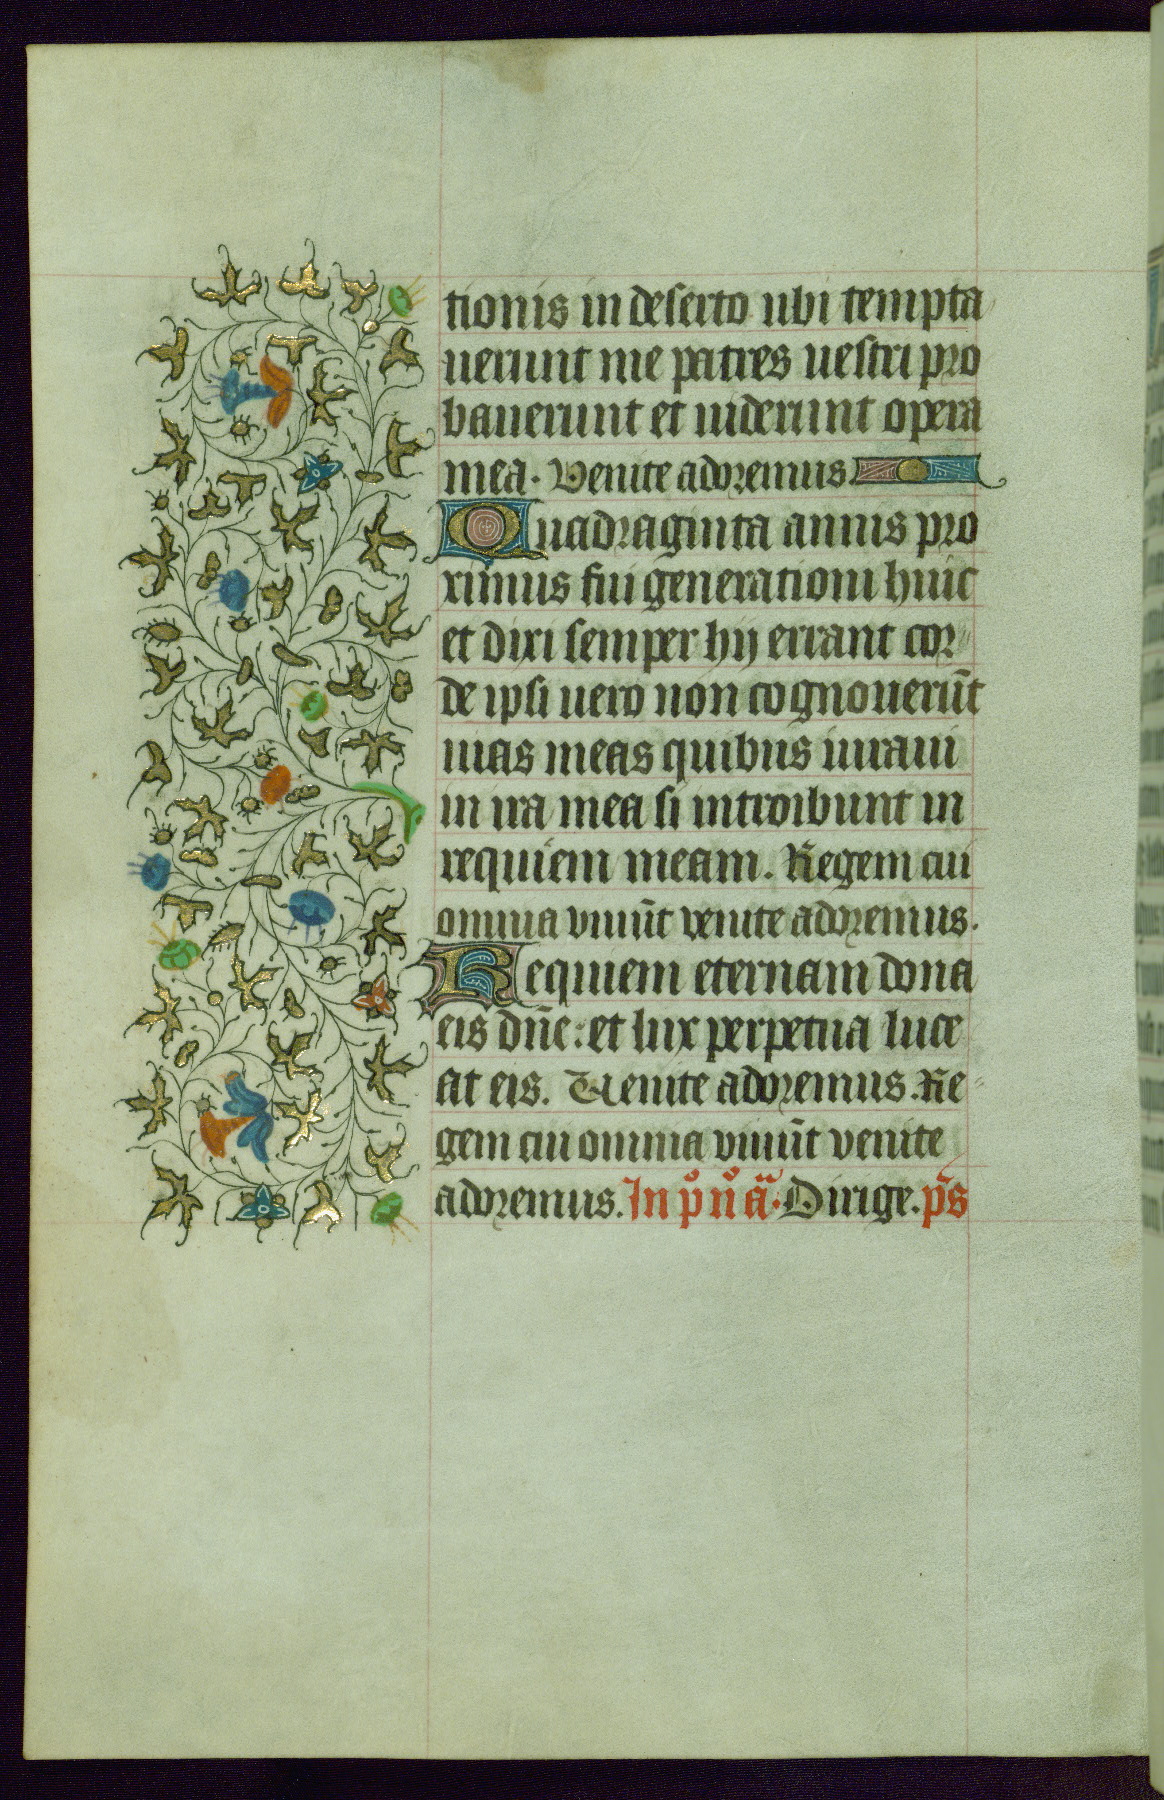 tionis in deserto ubi tempta
uerunt me patres uestri pro
bauerunt et uiderunt opera
mea. Venite adoremus
Quadraginta annis pro
ximus fui generationi huic
et dixi semper hij errant cor
de ipsi uero non cognouerūt
uias meas quibus iuraui
in ira mea si introibunt in
requiem meam. Regem cui
omnia viuūt venite adoremus.
Requiem eternam dona
eis dn̄e: et lux perpetua luce
at eis. Uenite adoremus. Re
gem cui omnia viuūt venite
adoremus. In p̊ n̊ ā. Dirige. p̄s